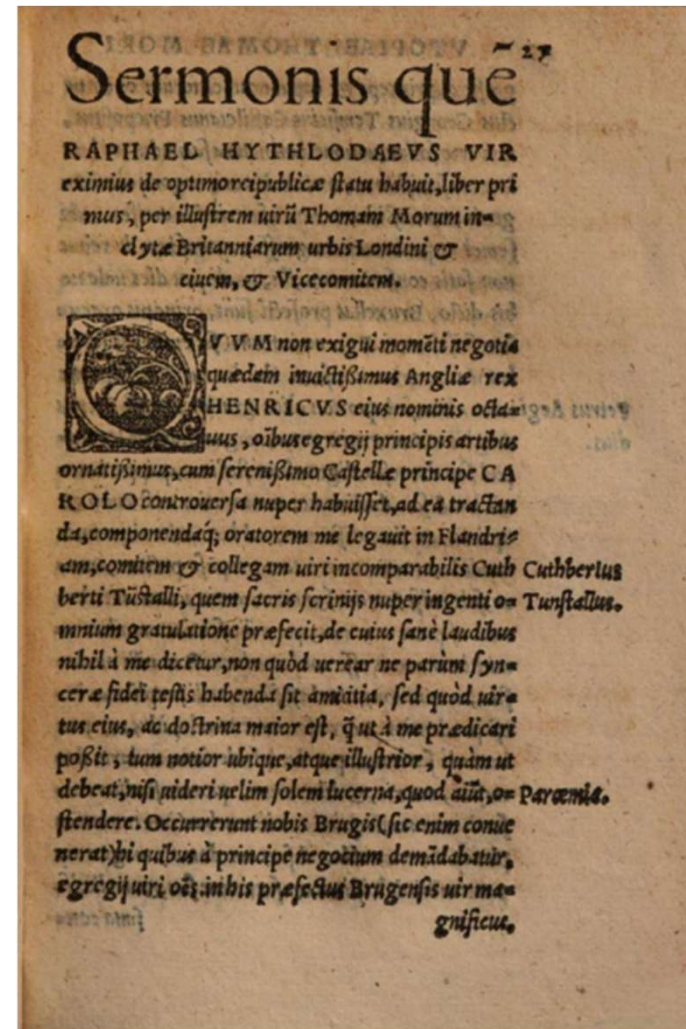 27
Sermonis quẽ
RAPHAEL HYTHLODAEVS VIR
eximius de optimo reipublicæ statu habuit, liber pri
mus, per illustrem uirũ Thomam Morum in-
clytæ Britanniarum urbis Londini &
ciuem, & Vicecomitem.
QVVM non exigui momẽti negotia
quædam inuictißimus Angliæ rex
HENRICVS eius nominis octa-
uus, oĩbus egregij principis artibus
ornatißimus, cum serenißimo Castellæ principe CA
ROLO controuersa nuper habuisset, ad ea tractan
da, componendaq́;, oratorem me legauit in Flandri-
am, comitem & collegam uiri incomparabilis Cuth
Cuthbertus
berti Tũstalli, quem sacris scrinijs nuper ingenti o-
Tunstallus.
mnium gratulatione præfecit, de cuius sanè laudibus
nihil à me dicetur, non quòd uerear ne parùm syn-
ceræ fidei testis habenda sit amicitia, sed quòd uir-
tus eius, ac doctrina maior est, q̃ ut à me prædicari
poßit, tum notior ubique, atque illustrior, quàm ut
debeat, nisi uideri uelim solem lucerna, quod aiũt, o-
Parœmia.
stendere. Occurrerunt nobis Brugis (sic enim conue
nerat) hi quibus à principe negocium demãdabatur,
egregij uiri oẽs. in his præfectus Brugensis uir ma-
gnificus,